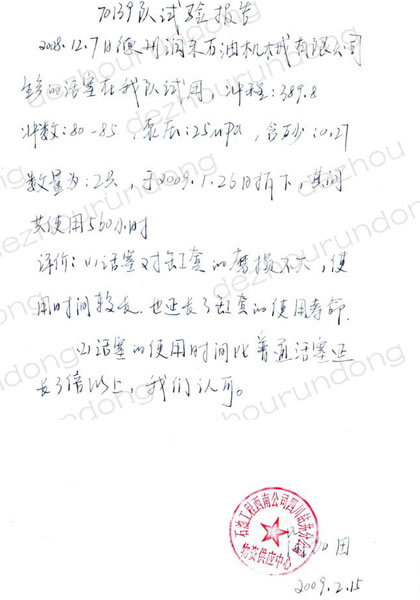 70139队试验报告
2008.12.7日德州润东石油机械有限公司
生产的活塞在我队试用，冲程：389.8
冲数：80-85，泵压：25MPa，含砂：0.27
数量为：2只，于2009.1.26日拆下，其间
共使用560小时
评价：(1)活塞对缸套的磨损不大，使
用时间较长，也延长了缸套的使用寿命.
(2)活塞的使用时间比普通活塞延
长3倍以上，我们认可。
石油工程西南公司四川钻井分公司
物资供应中心
2009.2.15
dezhourundong